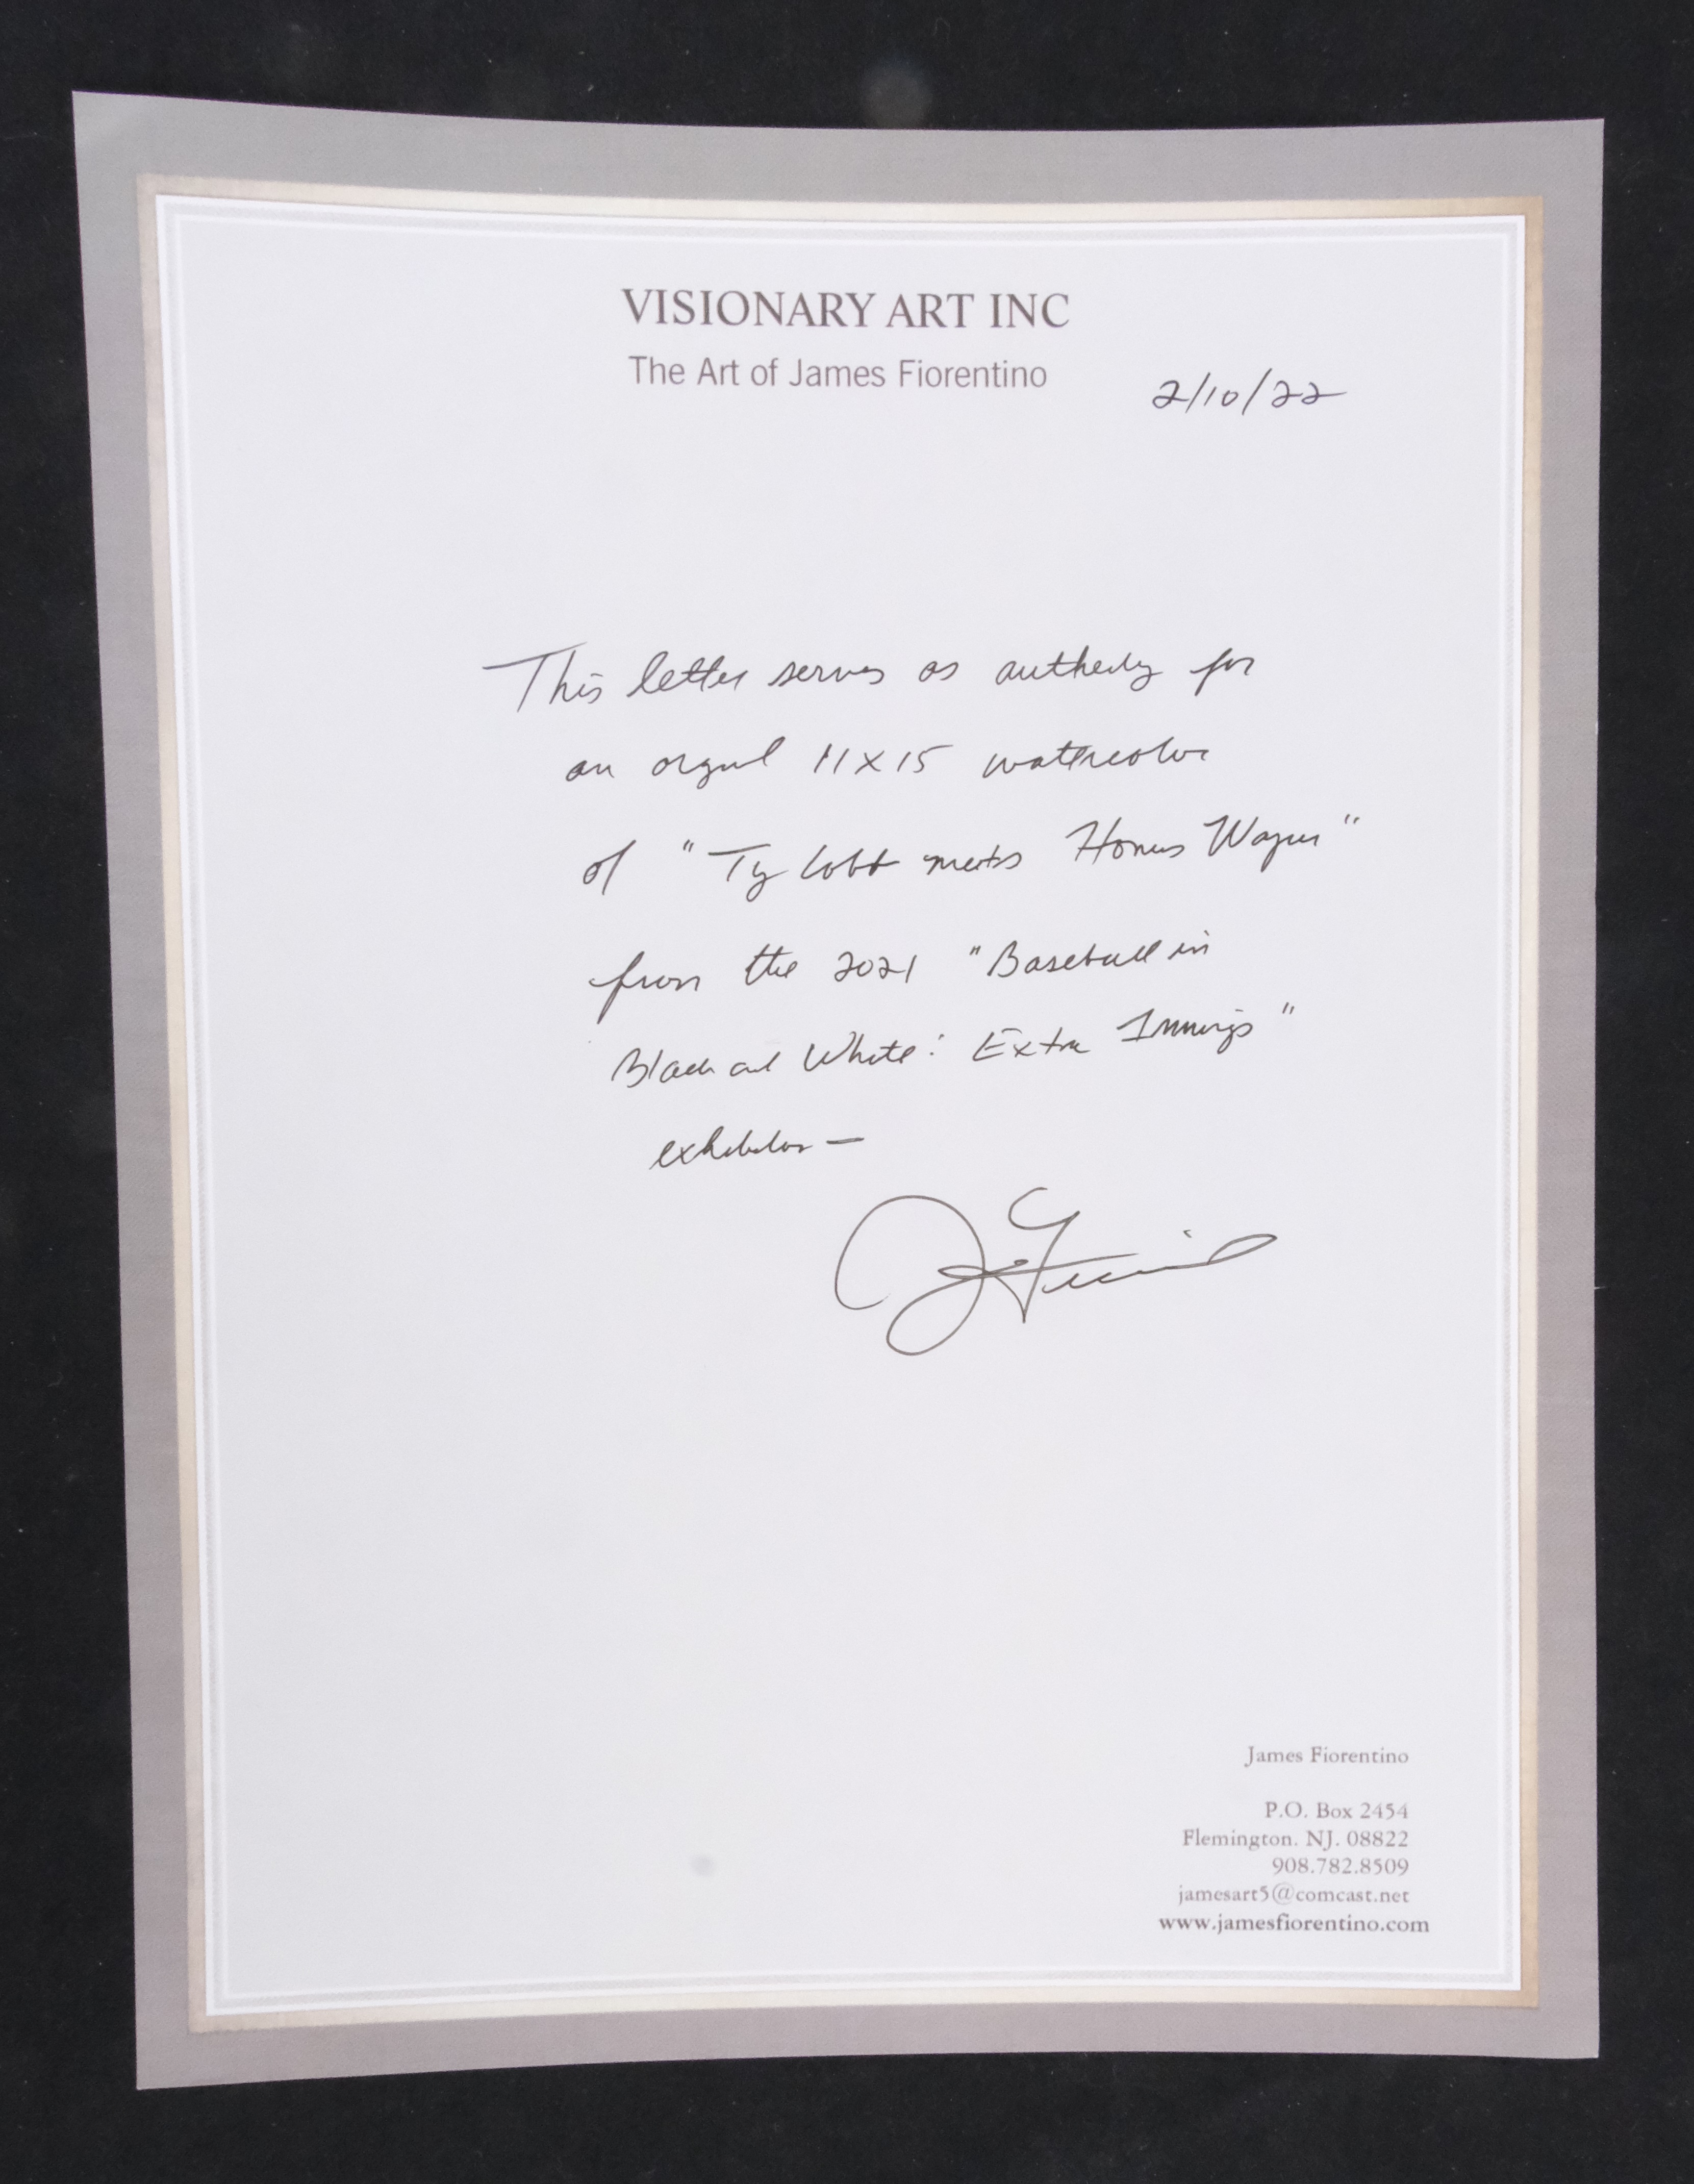 VISIONARY ART INC
The Art of James Fiorentino
2/10/22
This letter serves as for
an 11x15 watercolor
of "Ty Cobb meets Honus Wagner"
from the 2021 "Baseball in
Black and White: Extra Innings"
exhibition —
James Fiorentino
P.O. Box 2454
Flemington. NJ. 08822
908.782.8509
jamesart5@comcast.net
www.jamesfiorentino.com